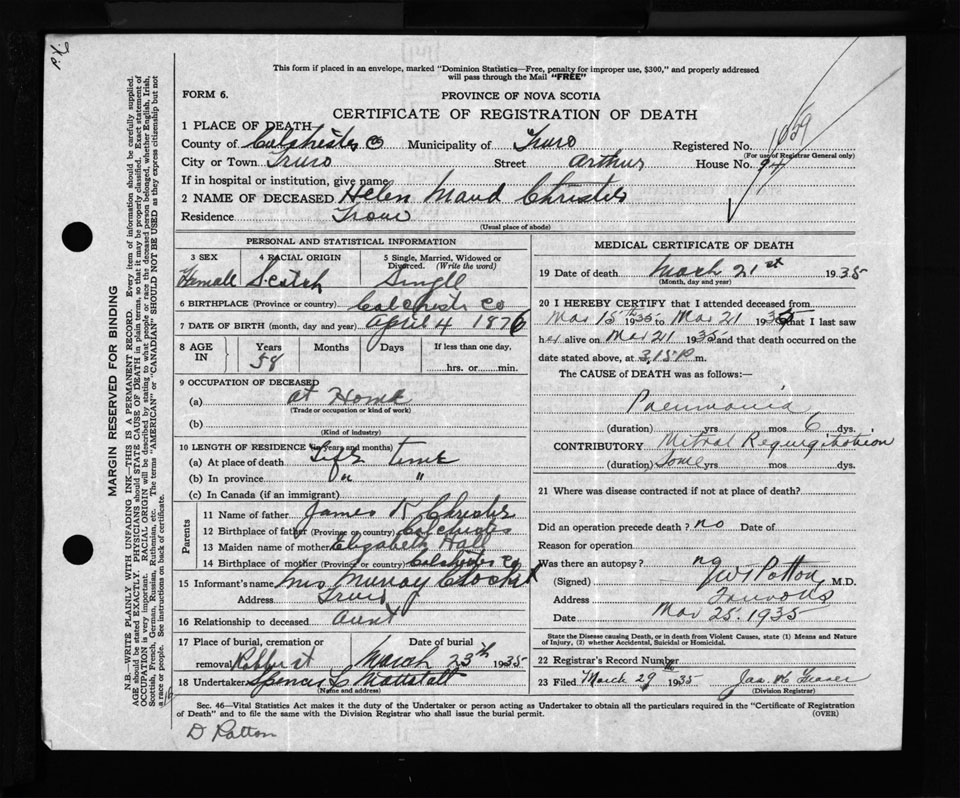 P.X.
This form if placed in an envelope, marked "Dominion Statistics—Free, penalty for improper use, $300," and properly addressed
will pass through the Mail "FREE"
FORM 6.
PROVINCE OF NOVA SCOTIA
CERTIFICATE OF REGISTRATION OF DEATH
1 PLACE OF DEATH
County of Colchester Co Municipality of Truro Registered No. 1659
(For use of Registrar General only)
City or Town Truro Street Arthur House No. 94
If in hospital or institution, give name
2 NAME OF DECEASED Helen Maud Christie
Residence Truro
(Usual place of abode)
PERSONAL AND STATISTICAL INFORMATION
3 SEX 4 RACIAL ORIGIN 5 Single, Married, Widowed or
Divorced. (Write the word)
Female Scotch Single
6 BIRTHPLACE (Province or country) Colchester Co
7 DATE OF BIRTH (month, day and year) April 4 1876
8 AGE IN Years Months Days If less than one day.
58 hrs. or min.
9 OCCUPATION OF DECEASED
(a) At Home
(Trade or occupation or kind of work)
(b)
(Kind of industry)
10 LENGTH OF RESIDENCE (in years and months)
(a) At place of death Life time
(b) In province " "
(c) In Canada (if an immigrant)
Parents
11 Name of father James K Christie
12 Birthplace of father (Province or country) Colchester
13 Maiden name of mother Elizabeth Hall
14 Birthplace of mother (Province or country) Colchester Co
15 Informant's name Mrs Murray
Address Truro
16 Relationship to deceased Aunt
17 Place of burial, cremation or removal Date of burial
Robie st March 23th 1935
18 Undertaker Spencer
(Name and address)
MEDICAL CERTIFICATE OF DEATH
19 Date of death March 21st 1935
(Month, day and year)
20 I HEREBY CERTIFY that I attended deceased from
Mar 15th 1935 to Mar 21 1935 that I last saw
her alive on Mar 21 1935 and that death occurred on the
date stated above, at 3.15 P m.
The CAUSE of DEATH was as follows:—
Pneumonia
(duration) yrs mos 6 dys.
CONTRIBUTORY Mitral Regurgitation
(duration) Some yrs mos dys.
21 Where was disease contracted if not at place of death?
Did an operation precede death? no Date of
Reason for operation
Was there an autopsy? no
(Signed) Patton M.D.
Address Truro NS
Date Mar 25. 1935
State the Disease causing Death, or in death from Violent Causes, state (1) Means and Nature
of Injury, (2) whether Accidental, Suicidal or Homicidal.
22 Registrar's Record Number
23 Filed March 29 1935 Jas. H Fraser
(Division Registrar)
Sec. 46—Vital Statistics Act makes it the duty of the Undertaker or person acting as Undertaker to obtain all the particulars required in the "Certificate of Registration
of Death" and to file the same with the Division Registrar who shall issue the burial permit. (OVER)
D Patton
MARGIN RESERVED FOR BINDING
N.B.—WRITE PLAINLY WITH UNFADING INK—THIS IS A PERMANENT RECORD. Every item of information should be carefully supplied.
AGE should be stated EXACTLY. PHYSICIANS should STATE CAUSE OF DEATH in plain terms, so that it may be properly classified. Exact statement of
OCCUPATION is very important. RACIAL ORIGIN will be described by stating to what people or race the deceased person belonged, whether English, Irish,
Scottish, French, German, Russian, Ruthenian, etc. The terms "AMERICAN" or "CANADIAN" SHOULD NOT BE USED as they express citizenship but not
a race or people. See instructions on back of certificate.